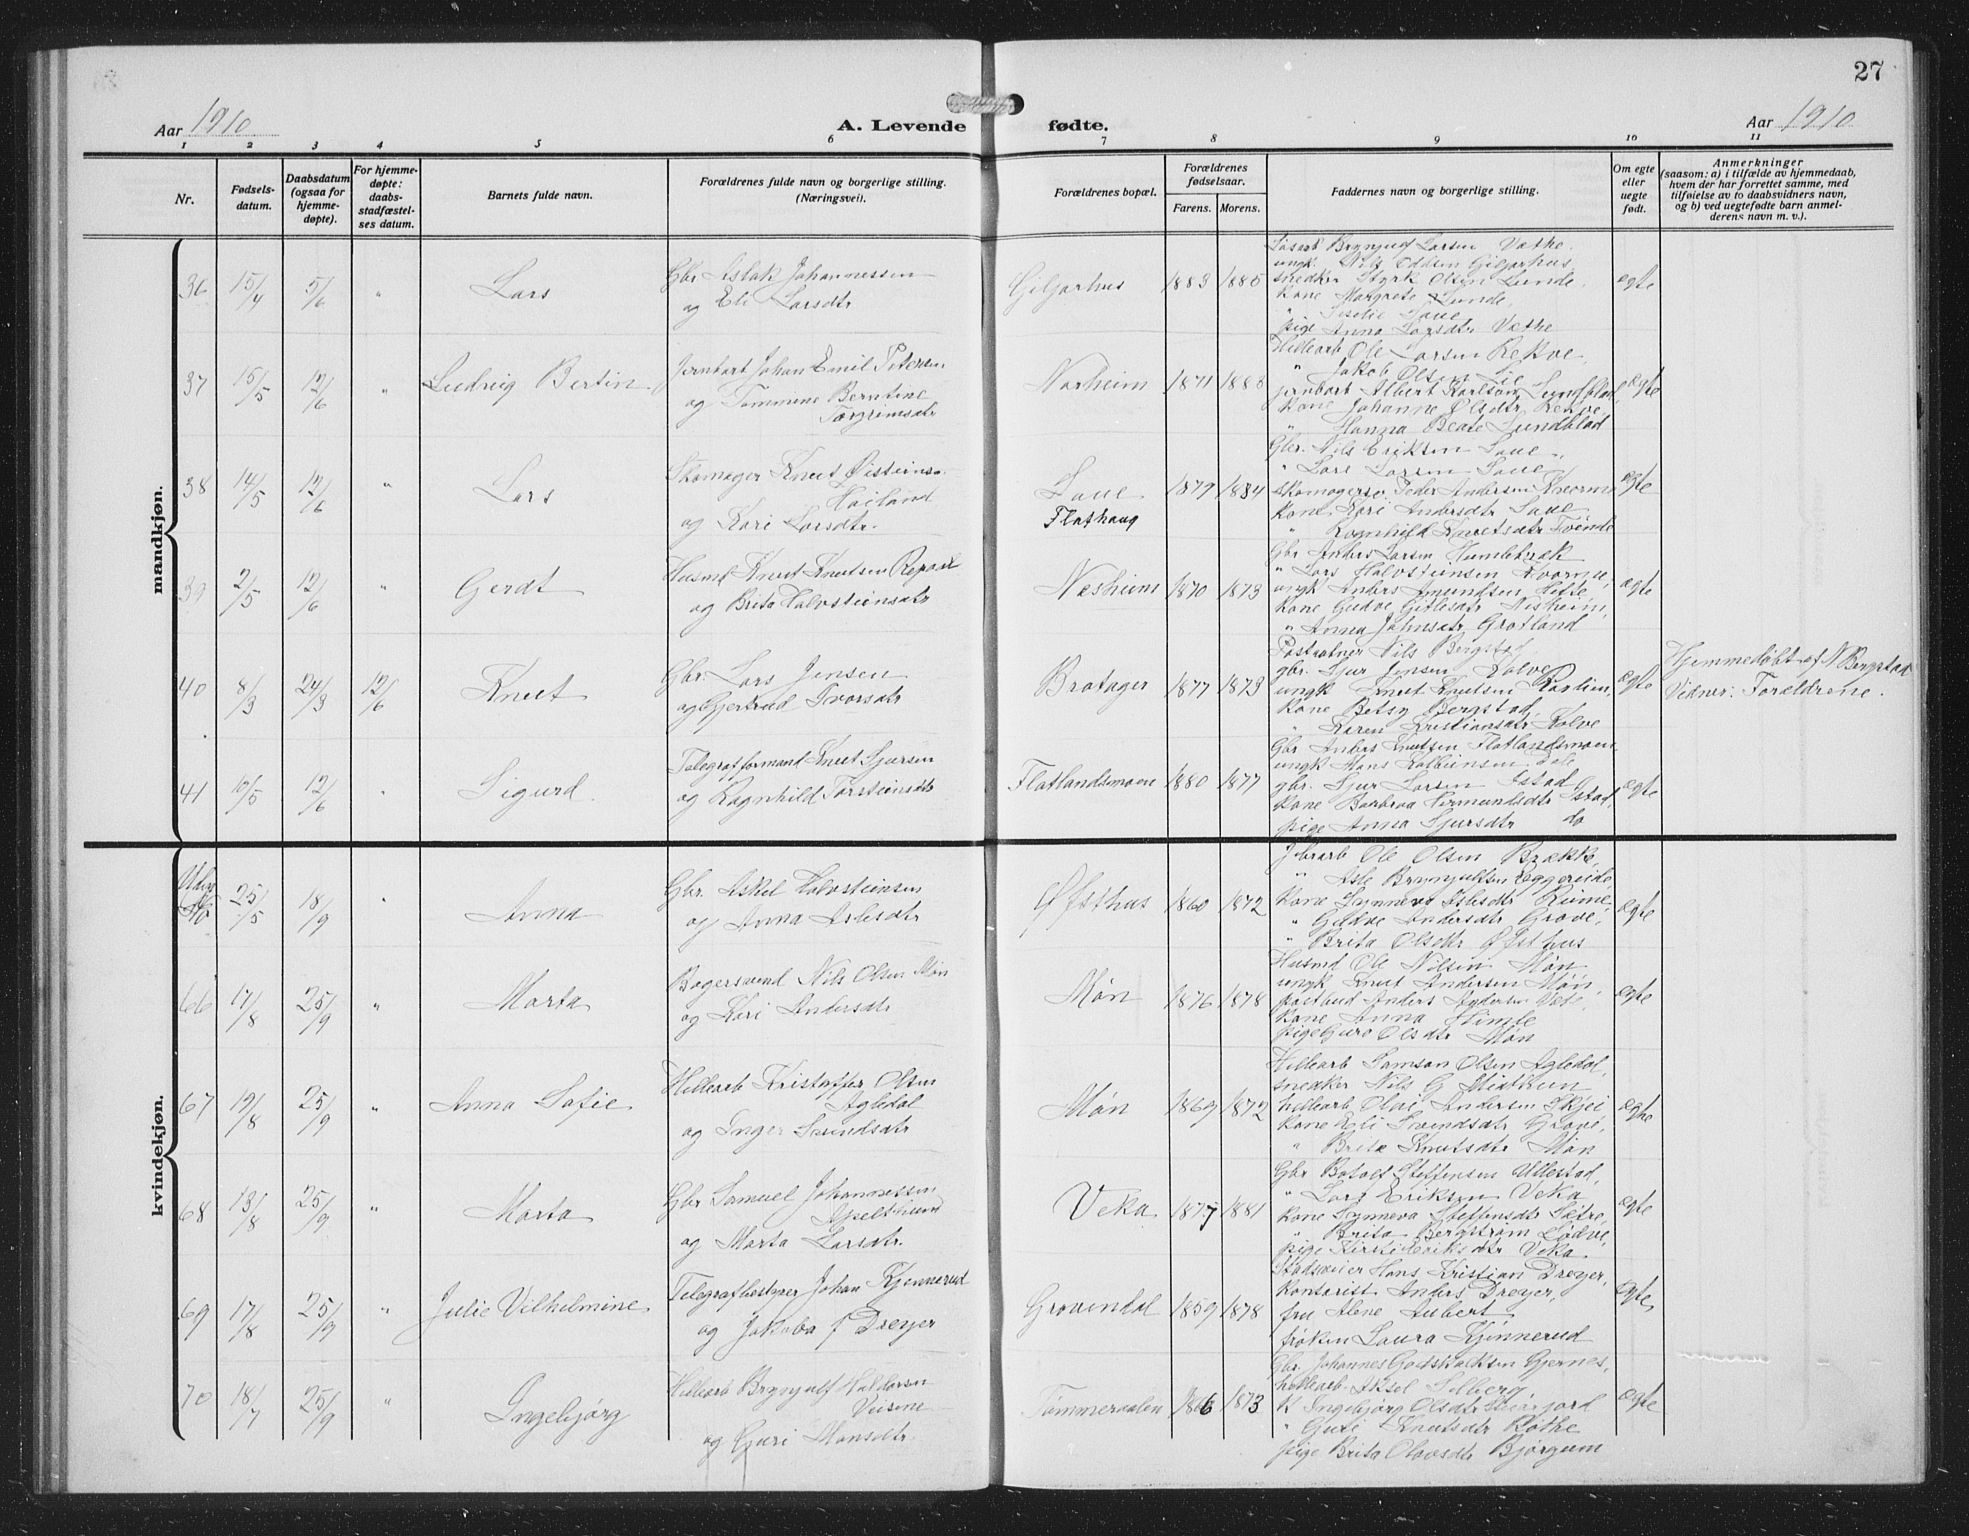 27
Aar 1910
A. Levende fødte.
Aar 1910
1 2 3 4 5 6 7 8 9 10 11
Nr.
Fødsels-
datum.
Daabsdatum
(ogsaa for
hjemme-
døpte).
For hjemme-
døpte:
daabs-
stadfæstel-
ses datum.
Barnets fulde navn.
Forældrenes fulde navn og borgerlige stilling.
(Næringsvei).
Forældrenes bopæl.
Forældrenes
fødselsaar.
Farens. Morens.
Faddernes navn og borgerlige stilling.
Om egte
eller
uegte
født.
Anmerkninger
(saasom: a) i tilfælde av hjemmedaab,
hvem der har forrettet samme, med
tilføielse av to daabsvidners navn,
og b) ved uegtefødte barn anmel-
derens navn m. v.).
mandkjøn.
36 15/4 5/6 " Lars
Gbr. Aslak Johannessen
og Eli Larsdtr
Giljarhus 1883 1885
Brynjulf Larsen Væthe.
ungk. Nils Oddsen Giljarhus,
snedker Styrk Olsen Lunde,
Kone Margrete Lunde,
pige Anna Larsdtr Væthe
egte
37 15/5 12/6 " Ludvig Bertin
Jernbarb Johan Emil Petersen
og Tommine Berntine
Torgrimsdtr
Norheim 1871 1883
Hellearb Ole Larsen Rekve,
" Jakob Olsen Lie
jernbarb Albert Karlsen Lundblad,
Kone Johanne Olsdtr Rekve,
" Hanna Beate Lundblad
egte
38 14/5 12/6 " Lars
Skomager Knut Øisteins.
Hailand
og Kari Larsdtr.
Saue
Flathaug
1879 1884
Gbr. Nils Eriksen Saue,
" Lars Larsen Saue
skomagersv. Peder Andersen Kvarme
Kone Kari Andersdtr Saue,
" Ragnhild Knutsdtr Tvinde
egte
39 2/5 12/6 " Gerdt
Husmd Knut Knutsen Repaal
og Brita Halvsteinsdtr
Nesheim 1870 1873
Gbr Anders Larsen Humlebrek
" Lars Halvsteinsen Kvarme,
ungk Anders Amundsen Hefte,
Kone Gudve Gitlesdtr Nesheim,
" Anna Johnsdtr Grotland
egte
40 8/3 24/3 12/6 Knut
Gbr. Lars Jensen
og Gjertrud Ivarsdtr
Bratager 1877 1873
Nils Bergstad
gbr. Sjur Jensen Kolve
ungk Knut Knutsen
Kone Betsy Bergstad,
" Karen Kristiansdtr Kolve
egte
Hjemmedøbt af N Bergstad
Vidner: Forældrene.
41 10/5 12/6 " Sigurd.
Telegrafformand Knut Sjursen
og Ragnhild Torsteinsdtr
Flatlandsmoen 1880 1877
Gbr Anders Knutsen Flatlandsmoen
ungk Mons Kolbeinsen
gbr. Sjur Larsen Istad
Kone Barbroa Hermundsdtr Istad,
pige Anna Sjursdtr do
egte
kvindekjøn.
25/5 18/9 " Anna
Gbr. Askel Halvsteinsen
og Anna Aslesdtr
Øfsthus 1860 1872
Ole Olsen Brække,
" Asle Brynjulfsen Eggereide,
Kone Synneve Aslesdtr Rume
" Gudve Andersdtr Grove,
" Brita Olsdtr Øfsthus
egte
66 17/8 25/9 " Marta
Bagersvend Nils Olsen Møn
og Kari Andersdtr
Møn 1876 1878
Husmd Ole Nilsen Møn
ungk Knut Andersen Møn,
postbud Anders Andersen
Kone Anna Himle
pige Guro Olsdtr Møn
egte
67 19/8 25/9 " Anna Sofie
Hellearb Kristoffer Olsen
Agledal
og Inger Svendsdtr
Møn 1869 1872
Hellearb Samson Olsen Agledal,
snedker Nils G Midttun
hellearb Olai Andersen Skjei
Kone Eli Svendsdtr Grove,
" Brita Knutsdtr Møn
egte
68 13/8 25/9 " Marta
Gbr Samuel Johannessen
Apelthund
og Marta Larsdtr.
Veka 1877 1881
Gbr Botolf Steffensen Ullestad,
" Lars Eriksen Veka
Kone Synneva Steffensdtr Sætre,
" Brita Bergstrøm Lødve,
pige Kirsti Eriksdtr Veka
egte
69 17/8 25/9 " Julie Vilhelmine
Telegrafbestyrer Johan Kjennerud
og Jakoba f Dreyer
Grovendal 1859 1878
Stadsveier Hans Kristian Dreyer,
Kontorist Anders Dreyer,
fru Alene Aubert
frøken Laura Kjennerud
egte
70 18/7 25/9 " Ingebjørg
Hellearb Brynjulf Haldorsen
Veisene
og Guri Monsdtr.
Tømmeraalen 1866 1873
Gbr. Johannes Godskalksen Gjernes,
hellearb. Aksel Selberg,
K Ingebjørg Olsdtr
" Guri Knutsdtr Røthe
pige Brita Olavsdtr Bjørgum
egte